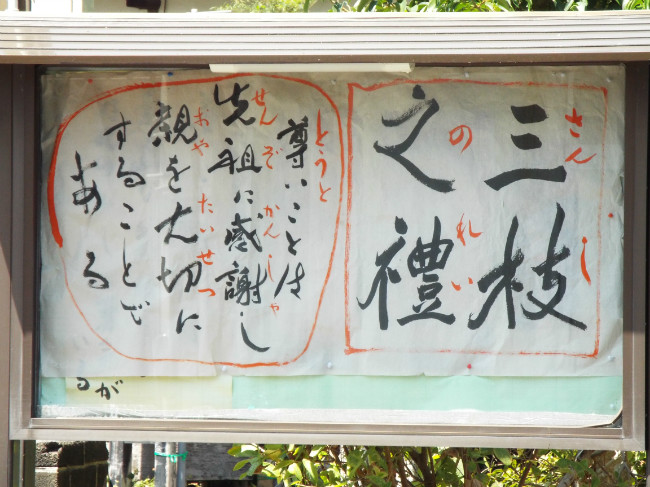 三枝
さんし
之禮
のれい
尊いことは
とうと
先祖に感謝し
せんぞ かんしゃ
親を大切に
おや たいせつ
することで
ある
るが